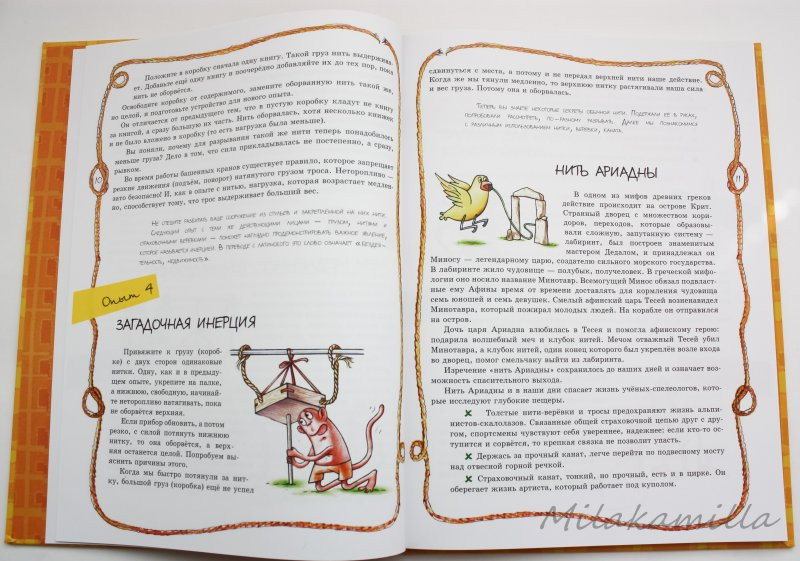 Положите в коробку сначала одну книгу. Такой груз нить выдержива-
ет. Добавьте ещё одну книгу и поочерёдно добавляйте их до тех пор, пока
нить не оборвётся.
Освободите коробку от содержимого, замените оборванную нить такой же,
но целой, и подготовьте устройство для нового опыта.
Он отличается от предыдущего тем, что в пустую коробку кладут не книгу
за книгой, а сразу большую их часть. Нить оборвалась, хотя несколько книжек
и не было вложено в коробку (то есть нагрузка была меньше).
Вы поняли, почему для разрывания такой же нити теперь понадобилось
меньше груза? Дело в том, что сила прикладывалась не постепенно, а сразу,
рывком.
Во время работы башенных кранов существует правило, которое запрещает
резкие движения (подъём, поворот) натянутого грузом троса. Неторопливо —
зато безопасно! И, как в опыте с нитью, нагрузка, которая возрастает медлен-
но, способствует тому, что трос выдерживает больший вес.
10
Не спешите разбирать ваше сооружение из стульев и закреплённой на них нити.
Следующий опыт с теми же действующими лицами — грузом, нитями и
страховочными верёвками — поможет наглядно продемонстрировать важное явление,
которое называется инерцией. В переводе с латинского это слово означает «бездея-
тельность, неподвижность».
Опыт 4
ЗАГАДОЧНАЯ ИНЕРЦИЯ
Привяжите к грузу (короб-
ке) с двух сторон одинаковые
нитки. Одну, как и в предыду-
щем опыте, укрепите на палке,
а нижнюю, свободную, начинай-
те неторопливо натягивать, пока
не оборвётся верхняя.
Если прибор обновить, а потом
резко, с силой потянуть нижнюю
нитку, то она оборвётся, а верх-
няя останется целой. Попробуем вы-
яснить причины этого.
Когда мы быстро потянули за нит-
ку, большой груз (коробка) ещё не успел
сдвинуться с места, а потому и не передал верхней нити наше действие.
Когда же мы тянули медленно, то верхнюю нитку растягивали наша сила
и вес груза. Потому она и оборвалась.
Теперь вы знаете некоторые секреты обычной нити. Подержали её в руках,
попробовали рассмотреть, по-разному разрывать. Далее мы познакомимся
с различным использованием нитей, верёвки, каната.
11
НИТЬ АРИАДНЫ
В одном из мифов древних греков
действие происходит на острове Крит.
Странный дворец с множеством кори-
доров, переходов, которые образовы-
вали сложную, запутанную систему —
лабиринт, был построен знаменитым
мастером Дедалом, и принадлежал он
Миносу — легендарному царю, создателю сильного морского государства.
В лабиринте жило чудовище — полубык, получеловек. В греческой мифо-
логии оно носило название Минотавр. Всемогущий Минос обязал подвласт-
ные ему Афины время от времени доставлять для кормления чудовища
семь юношей и семь девушек. Смелый афинский царь Тесей возненавидел
Минотавра, который пожирал молодых людей. На корабле он отправился
на остров.
Дочь царя Ариадна влюбилась в Тесея и помогла афинскому герою:
подарила волшебный меч и клубок нитей. Мечом отважный Тесей убил
Минотавра, а клубок нитей, один конец которого был укреплён возле входа
во дворец, помог смельчаку выйти из лабиринта.
Изречение «нить Ариадны» сохранилось до наших дней и означает воз-
можность спасительного выхода.
Нить Ариадны и в наши дни спасает жизнь учёных-спелеологов, кото-
рые исследуют глубокие пещеры.
✘ Толстые нити-верёвки и тросы предохраняют жизнь альпи-
нистов-скалолазов. Связанные общей страховочной цепью друг с дру-
гом, спортсмены чувствуют себя увереннее, надежнее: если кто-то ос-
тупится и сорвётся, то крепкая связка не позволит упасть.
✘ Держась за прочный канат, легче перейти по подвесному мосту
над отвесной горной речкой.
✘ Страховочный канат, тонкий, но прочный, есть и в цирке. Он
оберегает жизнь артиста, который работает под куполом.
Milakamilla